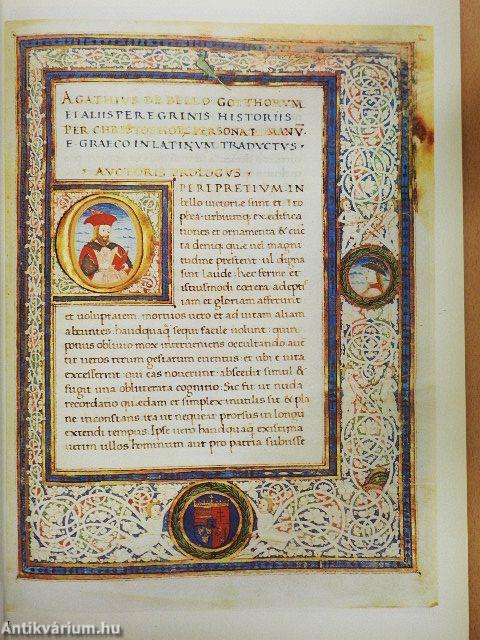 AGATHIUS DE BELLO GOTTHORVM
ET ALIIS PEREGRINIS HISTORIIS
PER CHRISTOPHOR. PERSONA ROMANV̄
E GRAECO IN LATINVM TRADVCTVS
AVCTORIS PROLOGVS
PERLPRETIVM IN
bello victoriæ sunt et tro
phea urbiumq; exedifica
tiones et ornamēta & cūc
ta deniq; quæ vel magni
tudine prestent vl digna
sunt laude: hec ferme et
istiusmodi cœtera adepti
iam et gloriam afferunt
et voluptatem. mortuos vero et ad vitam aliam
abeuntes haudquaq̄ sequi facile volunt: quin
potius oblivio mox interveniens occultando aut
tit veros rerum gestarum eventus: et ubi e vita
excesserint qui eas noverunt: abscedit simul &
fugit una obliterata cognitio: Sic fit ut nuda
recordatio quædam et simplex inutilis sit & pla
ne inconstans. ita ut nequeat prorsus in longū
extendi tempus. Ipse vero haudquaq̄ existima
verim ullos hominum aut pro patria subisse
Antikvárium.hu